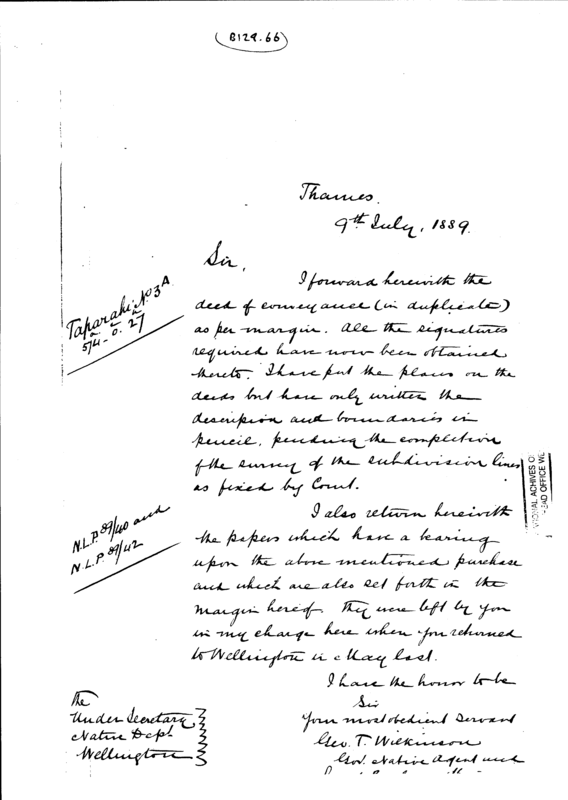 B129.66
Thames.
9th July, 1889.
Sir,
I forward herewith the
deed of conveyance (in duplicate)
as per margin. All the signatures
required have now been obtained
thereto. I have put the plans on the
deeds but have only written the
description and boundaries in
pencil, pending the completion
of the survey of the subdivision lines
as fixed by Court.
Taparahi No 3A
a r p
54-0.27
I also return herewith
the papers which have a bearing
upon the above mentioned purchase
and which are also set forth in the
margin hereof. They were left by you
in my charge here when you returned
to Wellington in May last.
N.L.P. 89/40 and
N.L.P. 89/42
I have the honor to be
Sir
Your most obedient servant
Geo. T. Wilkinson
Gov. Native Agent and
The
Under Secretary
Native Dept
Wellington
ATIONAL ACHIVES O
EAD OFFICE WE